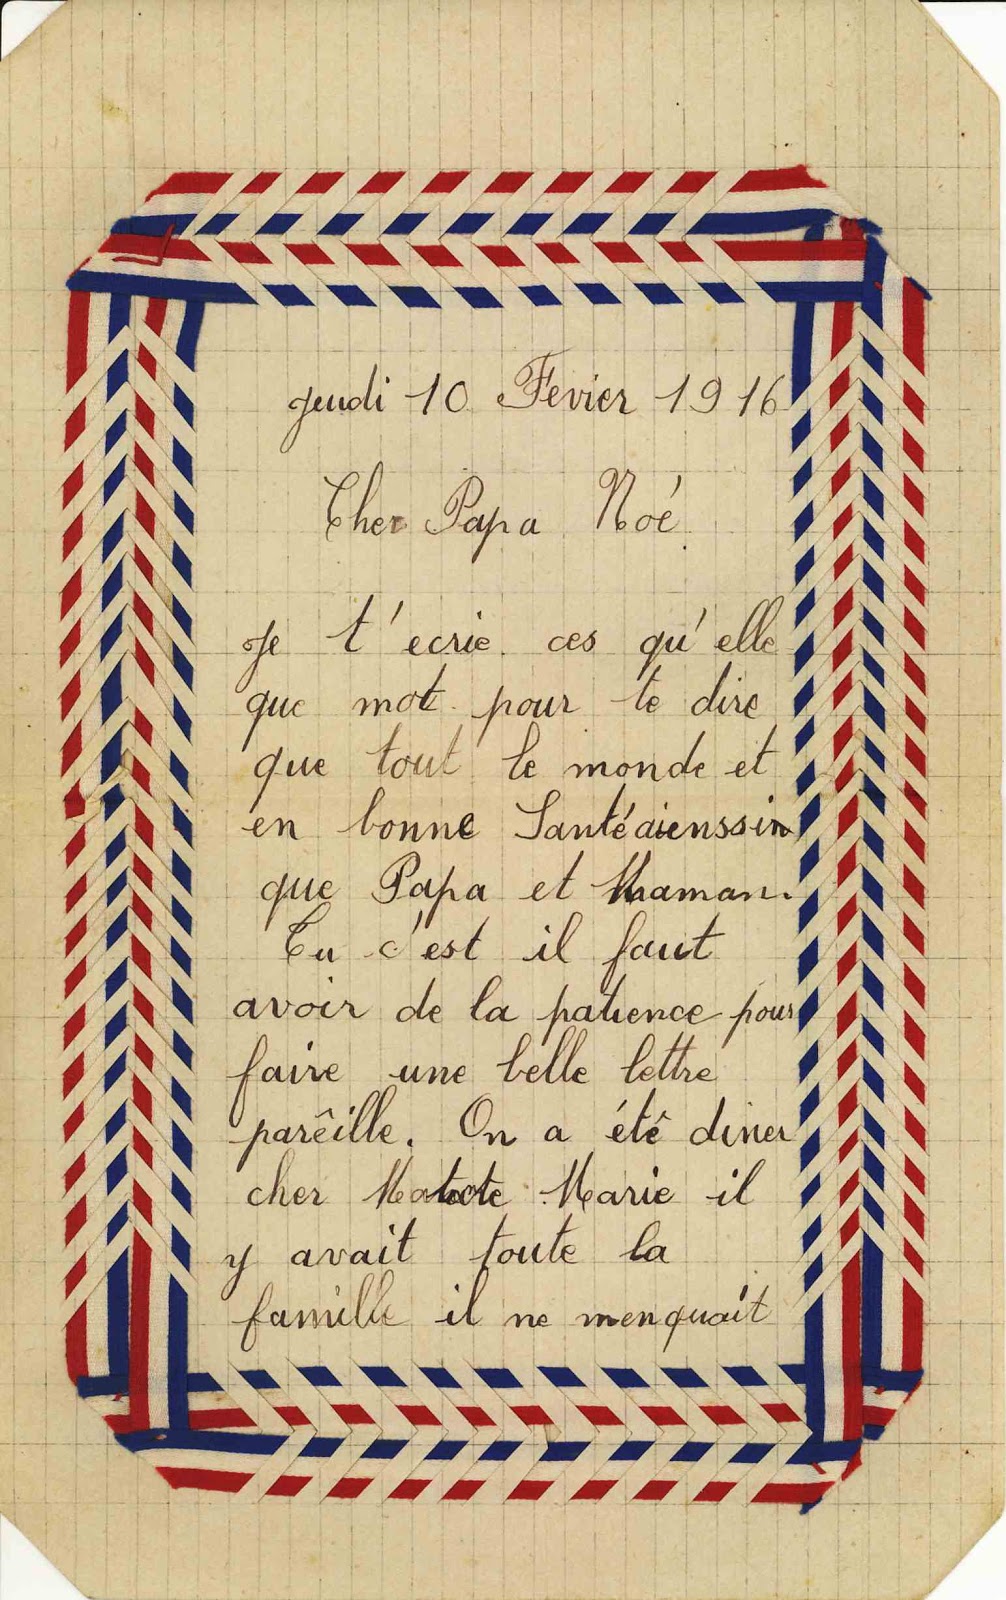 Jeudi 10 Fevier 1916
Cher Papa Noé
Je t'ecrie ces qu'elle
que mot pour te dire
que tout le monde et
en bonne Santé aienssin
que Papa et Maman.
Tu c'est il faut
avoir de la patience pour
faire une belle lettre
parêille. On a étê diner
cher Marie il
y avait toute la
famille il ne menquait